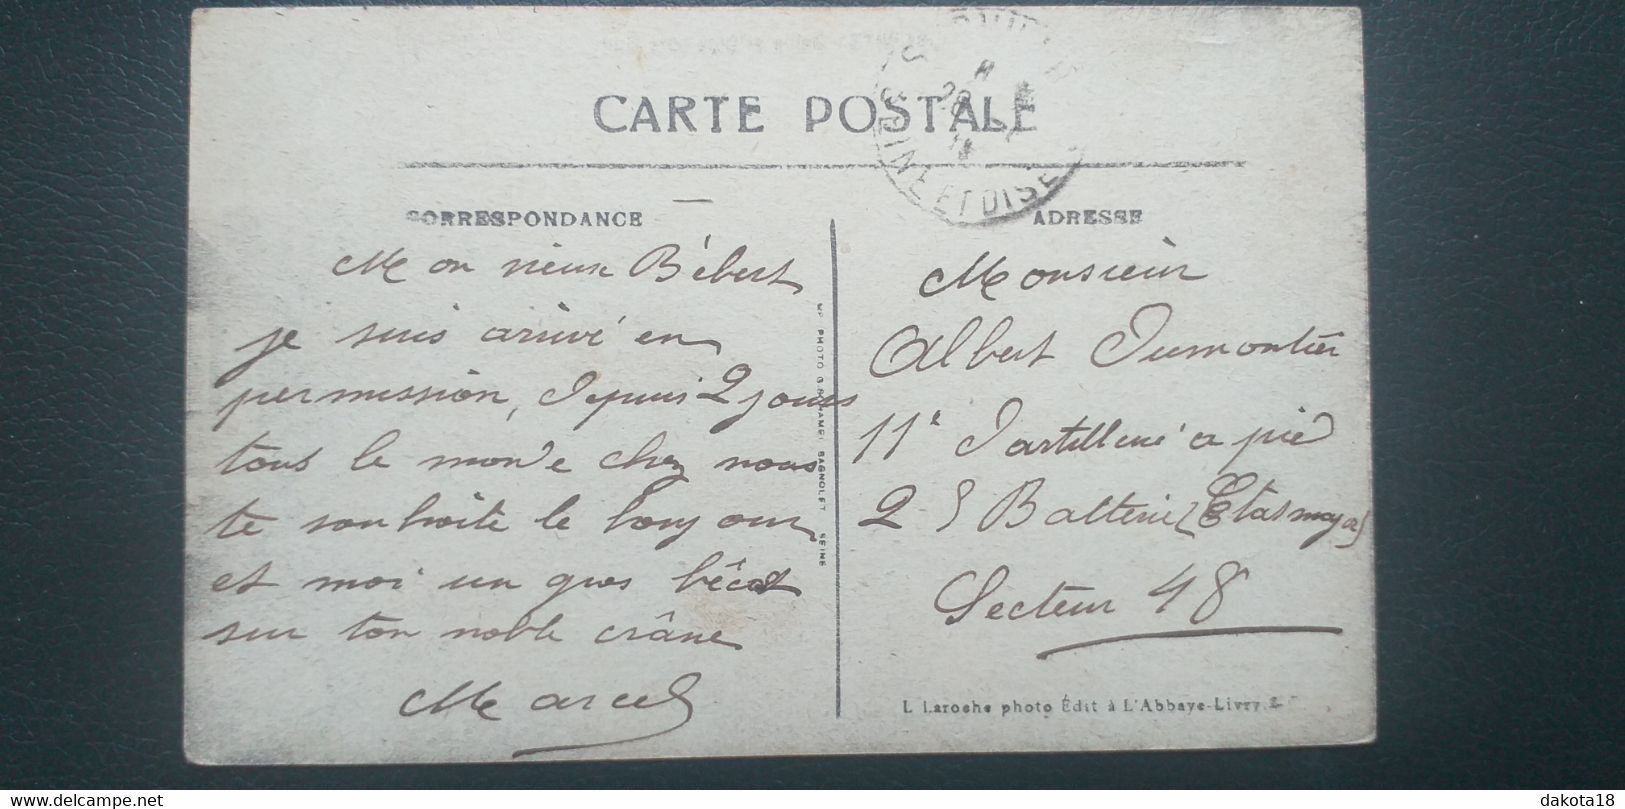 CARTE POSTALE
SEINE ET OISE
CORRESPONDANCE
Mon vieux Bébert
je suis arrivé en
permission, depuis 2 jours
tous le monde chez nous
te souhaite le bonjour
et moi un gros bécot
sur ton noble crâne
Marcel
PHOTO BAGNOLET SEINE
ADRESSE
Monsieur
Albert Dumontier
11e d'artillerie a pié
2 5 Batterie
Secteur 48
L Laroche photo Édit à L'Abbaye-Livry
delcampe.net
dakota18